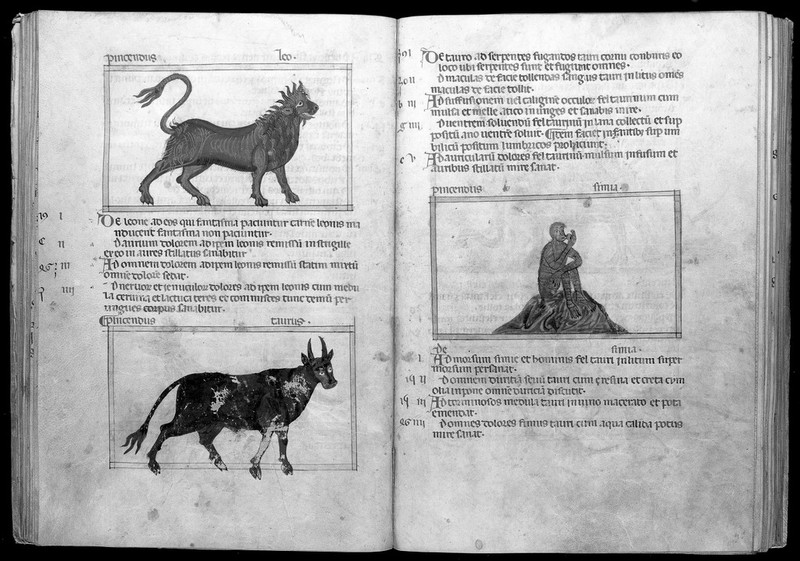 pincendus leo.
De leone ad eos qui fantasma paciuntur carnē leonis ma
nducent fantasma non paciuntur.
D aurium dolorem adipem leonis remissū in strigille
et eo in aures stillatus sanabitur
Ad omnem dolorem adipem leonis remissū statim mixtū
omnē dolorē sedat.
D neruor et genuculor dolores adipem leonis cum medu
la ceruina et lactuci teres et commisces tunc
ungues corpus sanabitur.
pincendus taurus.
De tauro ad serpentes fugandos tauri cornu conburis eo
loco ubi serpentes sunt et fugiunt omnes.
D maculas de facie tollendas sanguis tauri īnlitus omēs
maculas de facie tollit.
Ad suffusionem uel caliginē occulor fel taurinum cum
mulsa et melle atico inunges et sanabis mire.
D uentrem soluendū fel taurinū in lana collectū et sup
positū ano uentrē soluit. Item faciet infantibus sup um
bilicū positum lumbricos proiciunt.
Ad auricularū dolores fel taurinū mulsum infusum et
auribus stillatū mire sanat.
pincendus simia.
de simia.
Ad morsum simie et hominis fel tauri inlitum super
morsum persanat.
D omnem duritiā seuū tauri cum resina et creta cum
olia inpone omnē duriciā discutit.
Ad torminosos medula tauri in uino macerato et pota
emendat.
D omnes dolores fimus tauri cum aqua calida potus
mire sanat.